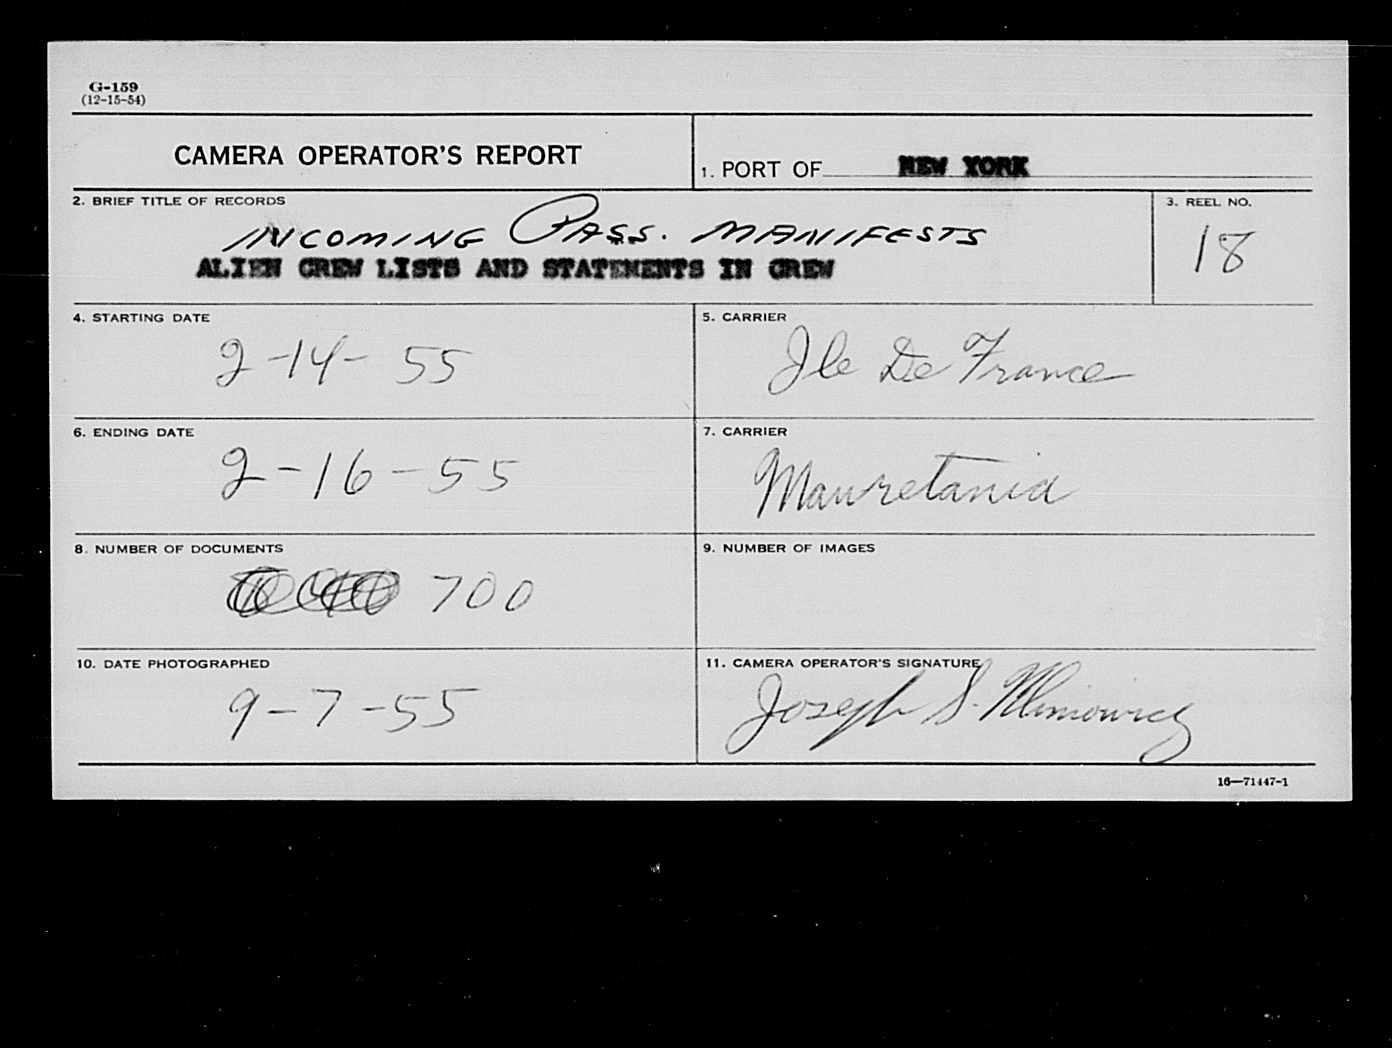 G-159
(12-15-54)
CAMERA OPERATOR'S REPORT
1. PORT OF NEW YORK
2. BRIEF TITLE OF RECORDS
INCOMING PASS. MANIFESTS
ALIEN CREW LISTS AND STATEMENTS IN CREW
3. REEL NO.
18
4. STARTING DATE
2-14-55
5. CARRIER
Ile De France
6. ENDING DATE
2-16-55
7. CARRIER
Mauretania
8. NUMBER OF DOCUMENTS
700
9. NUMBER OF IMAGES
10. DATE PHOTOGRAPHED
9-7-55
11. CAMERA OPERATOR'S SIGNATURE
Joseph S.
16—71447-1